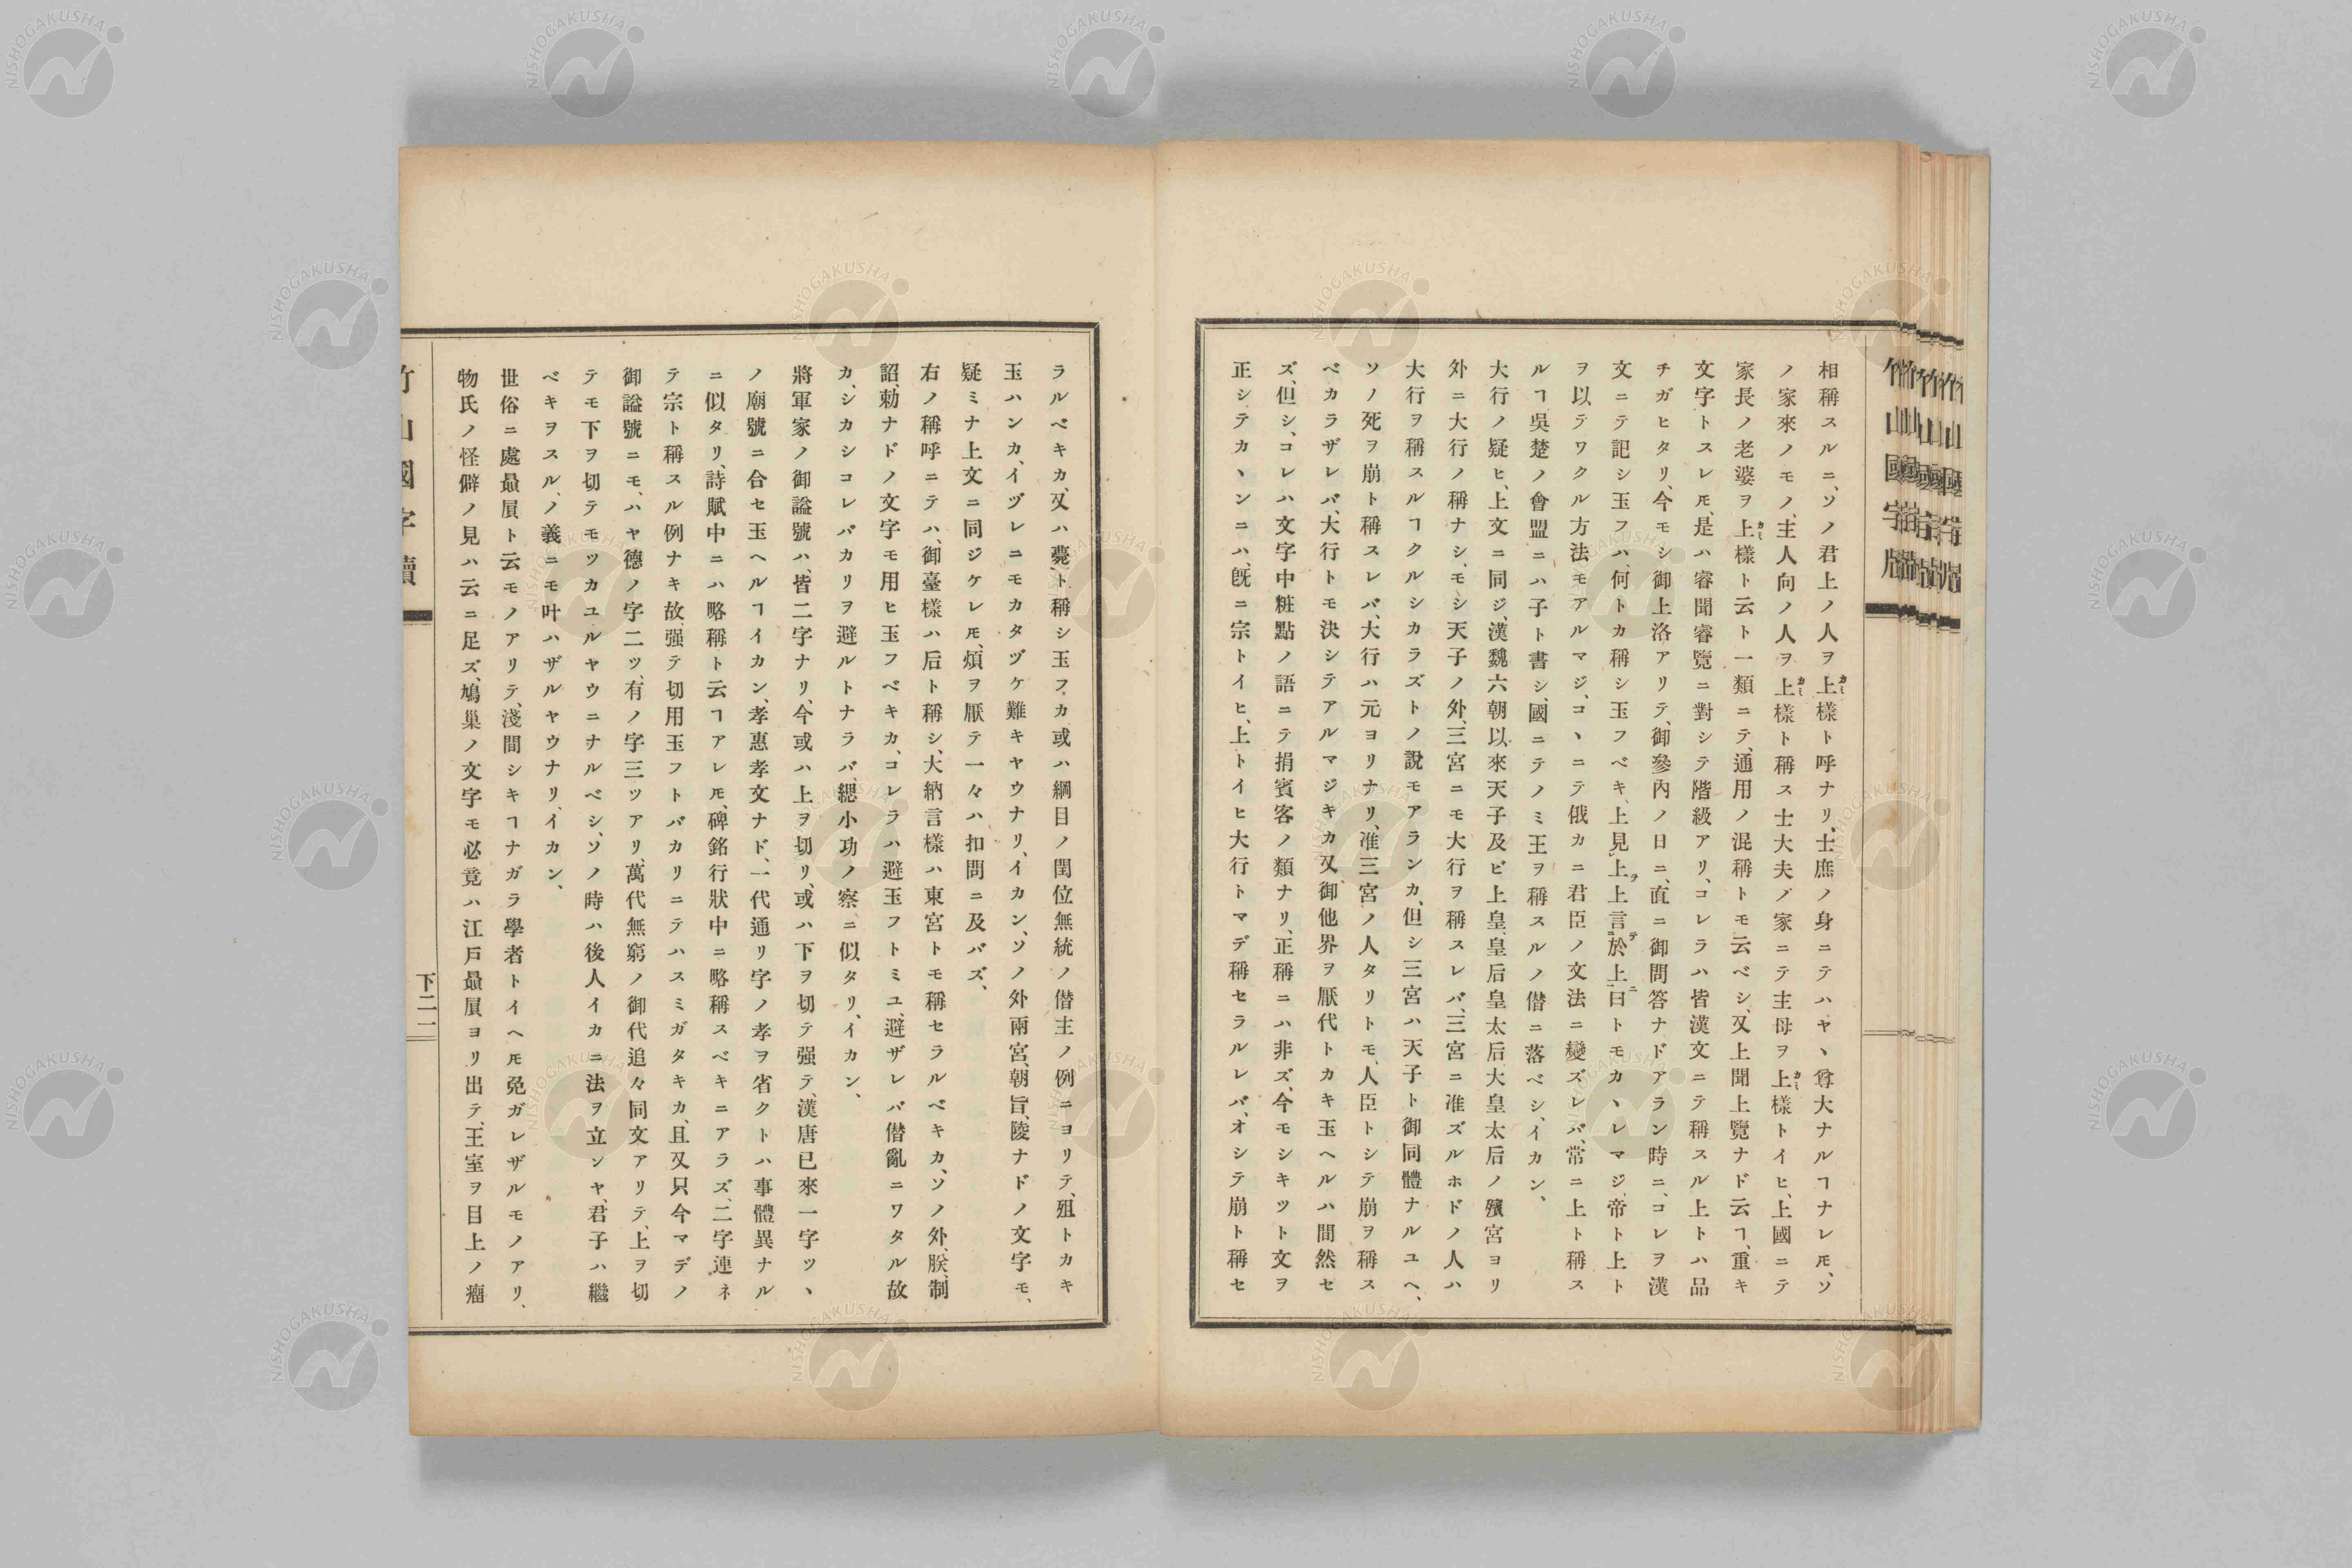 相稱スルニ、ソノ君上ノ人ヲ上樣ト呼ナリ、士庶ノ身ニテハヤヽ尊大ナルヿナレ𪜈、ソ
ノ家來ノモノ、主人向ノ人ヲ上樣ト稱ス士大夫ノ家ニテ主母ヲ上樣トイヒ、上國ニテ
家長ノ老婆ヲ上樣ト云ト一類ニテ、通用ノ混稱トモ云ベシ、又上聞上覽ナド云ヿ、重キ
文字トスレ𪜈、是ハ睿聞睿覽ニ對シテ階級アリ、コレラハ皆漢文ニテ稱スル上トハ品
チガヒタリ、今モシ御上洛アリテ、御參內ノ日ニ、直ニ御問答ナドアラン時ニ、コレヲ漢
文ニテ記シ玉フハ、何トカ稱シ玉フベキ、上見上上言於上曰トモカヽレマジ、帝ト上ト
ヲ以テワクル方法モアルマジ、コヽニテ俄カニ君臣ノ文法ニ變ズレバ、常ニ上ト稱ス
ルヿ吳楚ノ會盟ニハ子ト書シ、國ニテノミ王ヲ稱スルノ僭ニ落ベシ、イカン、
大行ノ疑ヒ、上文ニ同ジ、漢魏六朝以來天子及ビ上皇皇后皇太后大皇太后ノ殯宮ヨリ
外ニ大行ノ稱ナシ、モシ天子ノ外、三宮ニモ大行ヲ稱スレバ、三宮ニ准ズルホドノ人ハ
大行ヲ稱スルヿクルシカラズトノ說モアランカ、但シ三宮ハ天子ト御同體ナルユヘ、
ソノ死ヲ崩ト稱スレバ、大行ハ元ヨリナリ、准三宮ノ人タリトモ、人臣トシテ崩ヲ稱ス
ベカラザレバ、大行トモ決シテアルマジキカ又御他界ヲ厭代トカキ玉ヘルハ間然セ
ズ、但シ、コレハ文字中粧點ノ語ニテ捐賓客ノ類ナリ、正稱ニハ非ズ、今モシキツト文ヲ
正シテカヽンニハ、旣ニ宗トイヒ、上トイヒ大行トマデ稱セラルレバ、オシテ崩ト稱セ
ラルベキカ、又ハ薨ト稱シ玉フカ或ハ綱目ノ閏位無統ノ僭主ノ例ニヨリテ、殂トカキ
玉ハンカ、イヅレニモカタヅケ難キヤウナリ、イカン、ソノ外兩宮、朝旨、陵ナドノ文字モ、
疑ミナ上文ニ同ジケレ𪜈、煩ヲ厭テ一々ハ扣問ニ及バズ、
右ノ稱呼ニテハ、御臺樣ハ后ト稱シ、大納言樣ハ東宮トモ稱セラルベキカ、ソノ外、朕、制
詔、勅ナドノ文字モ用ヒ玉フベキカ、コレラハ避玉フトミユ、避ザレバ僭亂ニワタル故
カ、シカシコレバカリヲ避ルトナラバ、緦小功ノ察ニ似タリ、イカン、
將軍家ノ御謚號ハ、皆二字ナリ、今或ハ上ヲ切リ、或ハ下ヲ切テ强テ、漢唐已來一字ツヽ
ノ廟號ニ合セ玉ヘルヿイカン、孝惠孝文ナド、一代通リ字ノ孝ヲ省クトハ事體異ナル
ニ似タリ、詩賦中ニハ略稱ト云ヿアレ𪜈、碑銘行狀中ニ略稱スベキニアラズ、二字連ネ
テ宗ト稱スル例ナキ故、强テ切用玉フトバカリニテハスミガタキカ、且又只今マデノ
御謚號ニモ、ハヤ德ノ字二ツ、有ノ字三ツアリ、萬代無窮ノ御代追々同文アリテ、上ヲ切
テモ下ヲ切テモツカユルヤウニナルベシ、ソノ時ハ後人イカニ法ヲ立ンヤ、君子ハ繼
ベキヲスル、ノ義ニモ叶ハザルヤウナリ、イカン、
世俗ニ處贔屓ト云モノアリテ、淺間シキヿナガラ學者トイヘ𪜈免ガレザルモノアリ、
物氏ノ怪僻ノ見ハ云ニ足ズ、鳩巢ノ文字モ必竟ハ江戶贔屓ヨリ出テ、王室ヲ目上ノ瘤
竹山國字牘
下二一